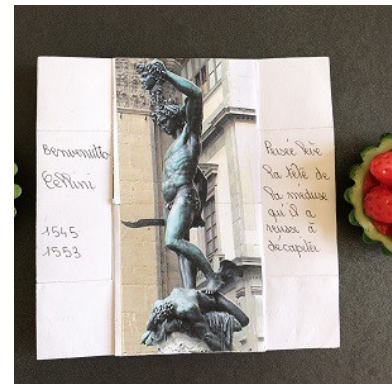 Benvenutto
Cellini
1545
1553
Persée lève
la tête de
la méduse
qu'il a
réussi à
décapiter